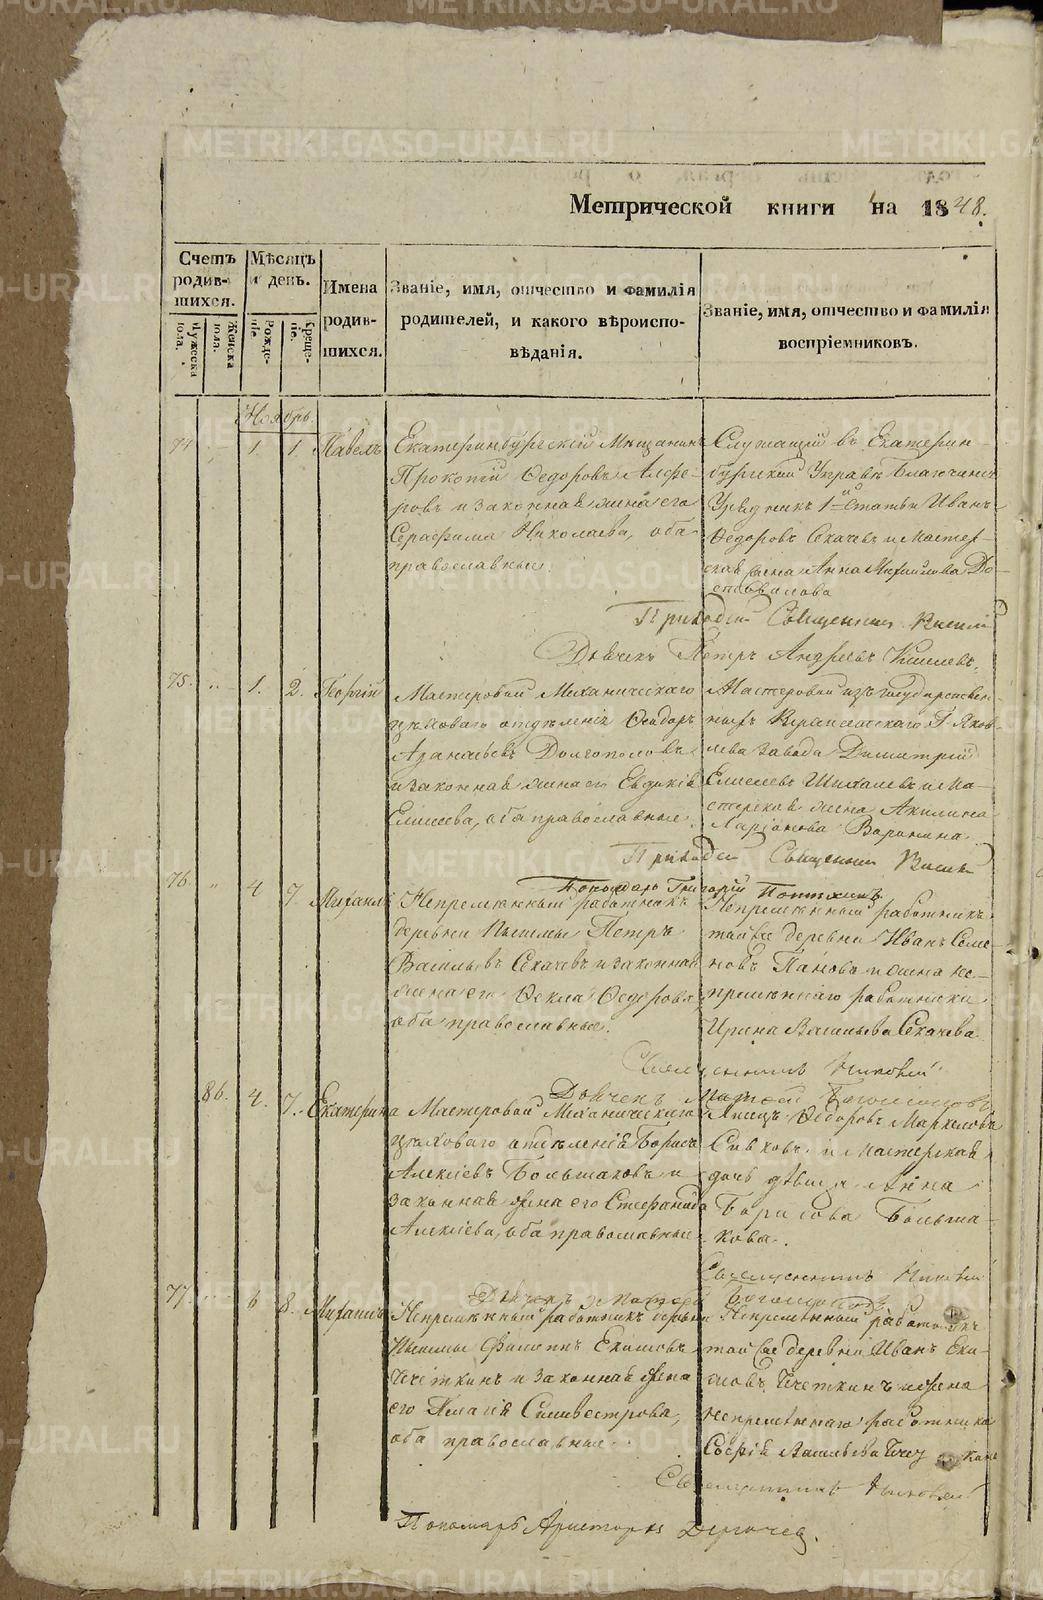 Метрической книги на 1848.
Счетъ родившихся.
Мужеска пола.
Женска пола.
Мѣсяцъ и день.
Рожденіе.
Крещеніе.
Имена родившихся.
Званіе, имя, отчество и фамилія
родителей, и какого вѣроиспо-
вѣданія.
Званіе, имя, отчество и фамилія
воспріемниковъ.
Ноябрь.
74. 1. 1. Павелъ
Екатеринбургскій Мѣщанинъ
Прокопій Ѳедоровъ Алфе-
ровъ и законная жена его
Серафима Николаева, оба
православные.
Служащій въ Екатерин-
бургской Управѣ Благочинія
Урядникъ 1й Статьи Иванъ
Ѳедоровъ Секачевъ и мастер-
ская жена Анна Михайлова До-
стовалова
Приходскій Священникъ
Дьячекъ Петръ Андреевъ
75. 1. 2. Георгій
Мастеровой Механическаго
цѣховаго отдѣленія Ѳеодоръ
Долгополовъ
и законная жена его Евдокія
Елисеева, оба православные.
Мастеровой изъ государствен-
завода Димитрій
Елисеевъ и ма-
стерская жена Акилина
Ларіонова Воронина.
Приходскій Священникъ
Пономарь Григорій
76. 4 7. Михаилъ
Непремѣнный работникъ
деревни Пышмы Петръ
Васильевъ Секачевъ и законная
жена его Ѳекла Ѳедорова
оба православные.
Непремѣнный работникъ
той же деревни Иванъ Семе-
новъ Пановъ и жена не-
премѣннаго работника
Ирина Васильева Секачева
Священникъ
Дьячекъ Матѳей
86. 4. 7. Екатерина
Мастеровой Механическаго
цѣховаго отдѣленія Борисъ
Алексѣевъ Большаковъ и
законная жена его Стефанида
Алексѣева, оба православные.
Ѳедоровъ Маркеловъ
Сивковъ и мастерская
дочь дѣвица Анна
Борисова Больша-
кова.
Священникъ
Дьячекъ Матѳей
77. 6 8. Михаилъ
Непремѣнный работникъ деревни
Пышмы Филиппъ Екимовъ
Чечеткинъ и законная жена
его Пелагія Сильвестрова,
оба православные.
Непремѣнный работникъ
той же деревни Иванъ Еки-
мовъ Чечеткинъ и жена
непремѣннаго работника
Софія Васильева
Священникъ
Пономарь Аристархъ Дергачев.
METRIKI.GASO-URAL.RU